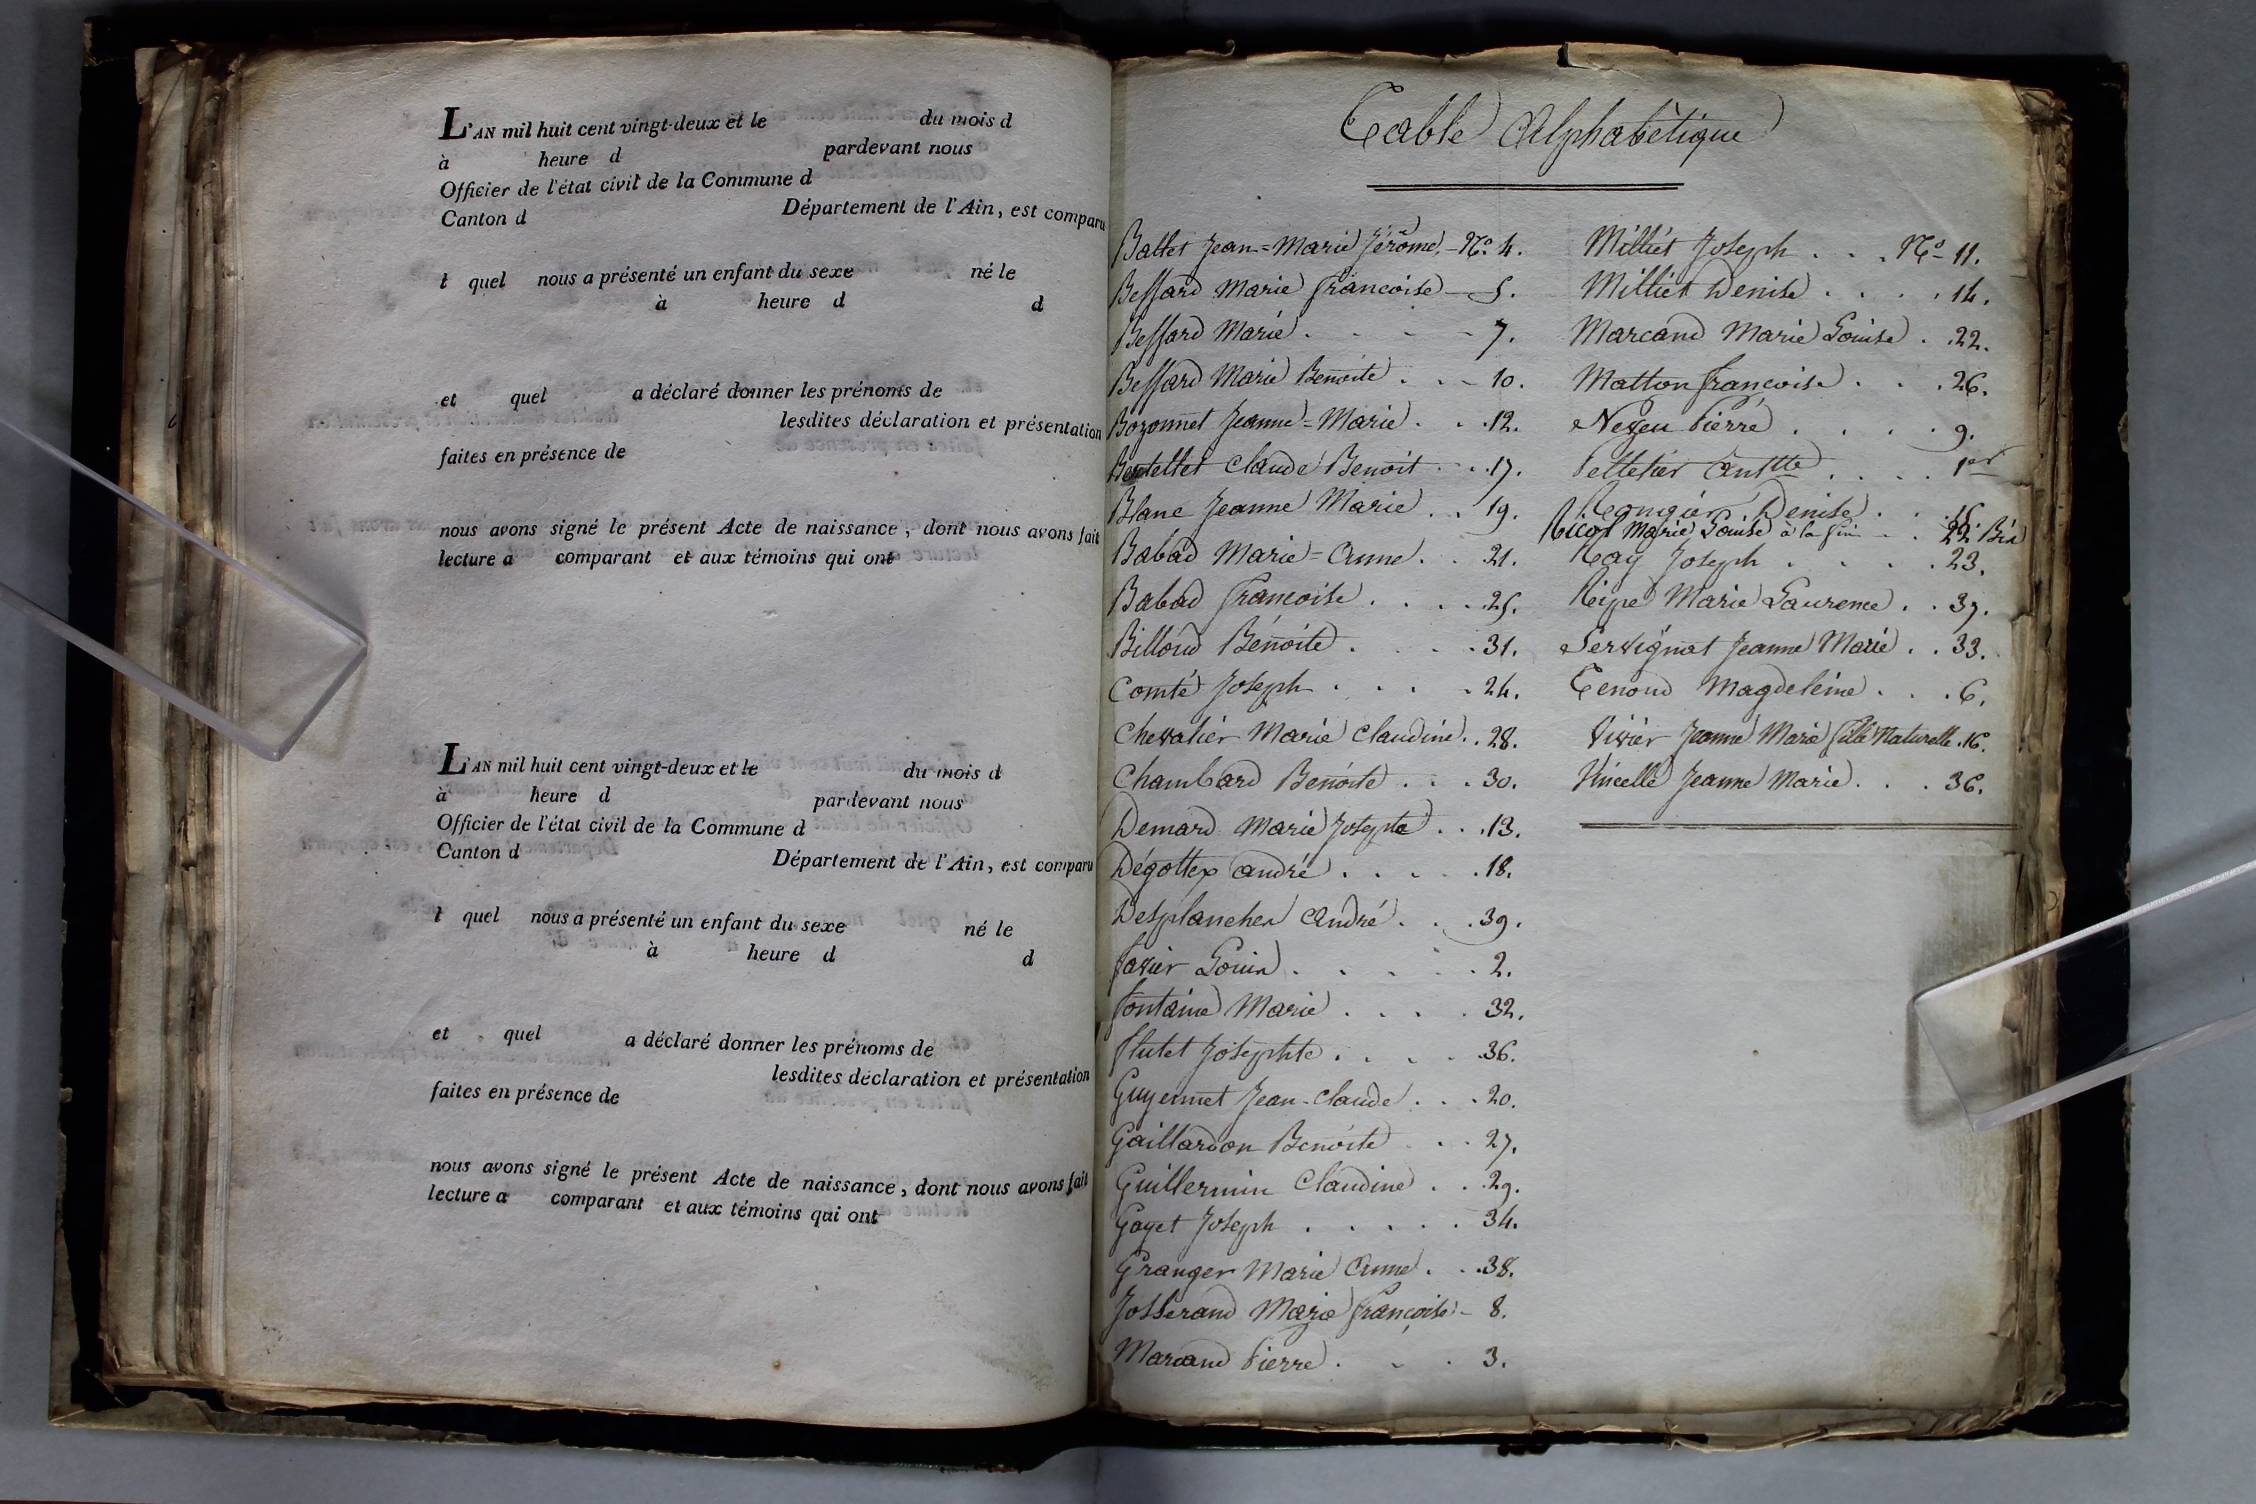 L'AN mil huit cent vingt-deux et le du mois d
à heure d pardevant nous
Officier de l'état civil de la Commune d
Canton d Département de l'Ain, est comparu
t quel nous a présenté un enfant du sexe né le
à heure d d
et quel a déclaré donner les prénoms de
lesdites déclaration et présentation
faites en présence de
nous avons signé le présent Acte de naissance, dont nous avons fait
lecture a comparant et aux témoins qui ont
L'AN mil huit cent vingt-deux et le du mois d
à heure d pardevant nous
Officier de l'état civil de la Commune d
Canton d Département de l'Ain, est comparu
t quel nous a présenté un enfant du sexe né le
à heure d d
et quel a déclaré donner les prénoms de
lesdites déclaration et présentation
faites en présence de
nous avons signé le présent Acte de naissance, dont nous avons fait
lecture a comparant et aux témoins qui ont
Table Alphabétique
Ballet Jean=Marie Jérôme - No. 4.
Beffard Marie francoise - 5.
Beffard Marie . - - 7.
Beffard Marie Benoite . . - 10.
Bozonnet Jeanne=Marie . . . 12.
Bertellet Claude Benoit . . . 17.
Blanc Jeanne Marie . . 19.
Babad Marie=Anne . . 21.
Babad francoise . . . . 25.
Billoud Bénoite . . . . 31.
Comté Joseph . . . . 24.
Chevalier Marie Claudine . . 28.
Chambard Benoite . . . 30.
Demard Marie Josephte . . . 13.
Dégottex andré . . . . . 18.
Desplanches André . . . 39.
favier Louis . . . . . 2.
fontaine Marie . . . . 32.
flutet Josephte . . . . 36.
Guyennet Jean-Claude . . . 20.
Gaillardon Benoite . . 27.
Guillermin Claudine . . 29.
Goyet Joseph . . . . . 34.
Granger Marie Anne . . . 38.
Josserand Marie françoise - 8.
Marcand Pierre . . . 3.
Milliet Joseph . . . No 11.
Milliet Denise . . . . 14.
Marcand Marie Louise . . 22.
Matton francoise . . . 26.
Neyeu Pierre . . . . . 9.
Pelletier Antte . . . . 1er
Rougier Denise . . . 15
Ricol Marie Louise à la fin . . 22 Bis
Ray Joseph . . . . 23.
Ripe Marie Laurence . . 37.
Servignat Jeanne Marie . . 33.
Tenoud Magdeleine . . . 6.
Vivier Jeanne Marie fille Naturelle . 16.
Vincelle Jeanne Marie . . . 36.